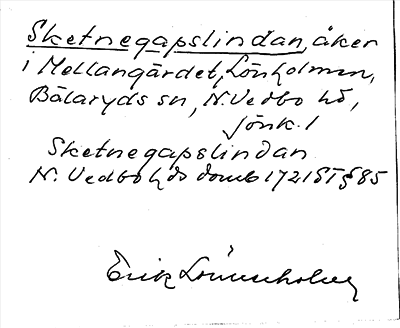 Sketnegapslindan, åker
i Mellangärdet, Lönholmen,
Bälaryds sn, N. Vedbo hd,
Jönk. l
Sketnegapslindan
N. Vedbo hds domb 1721 ST § 85
Erik